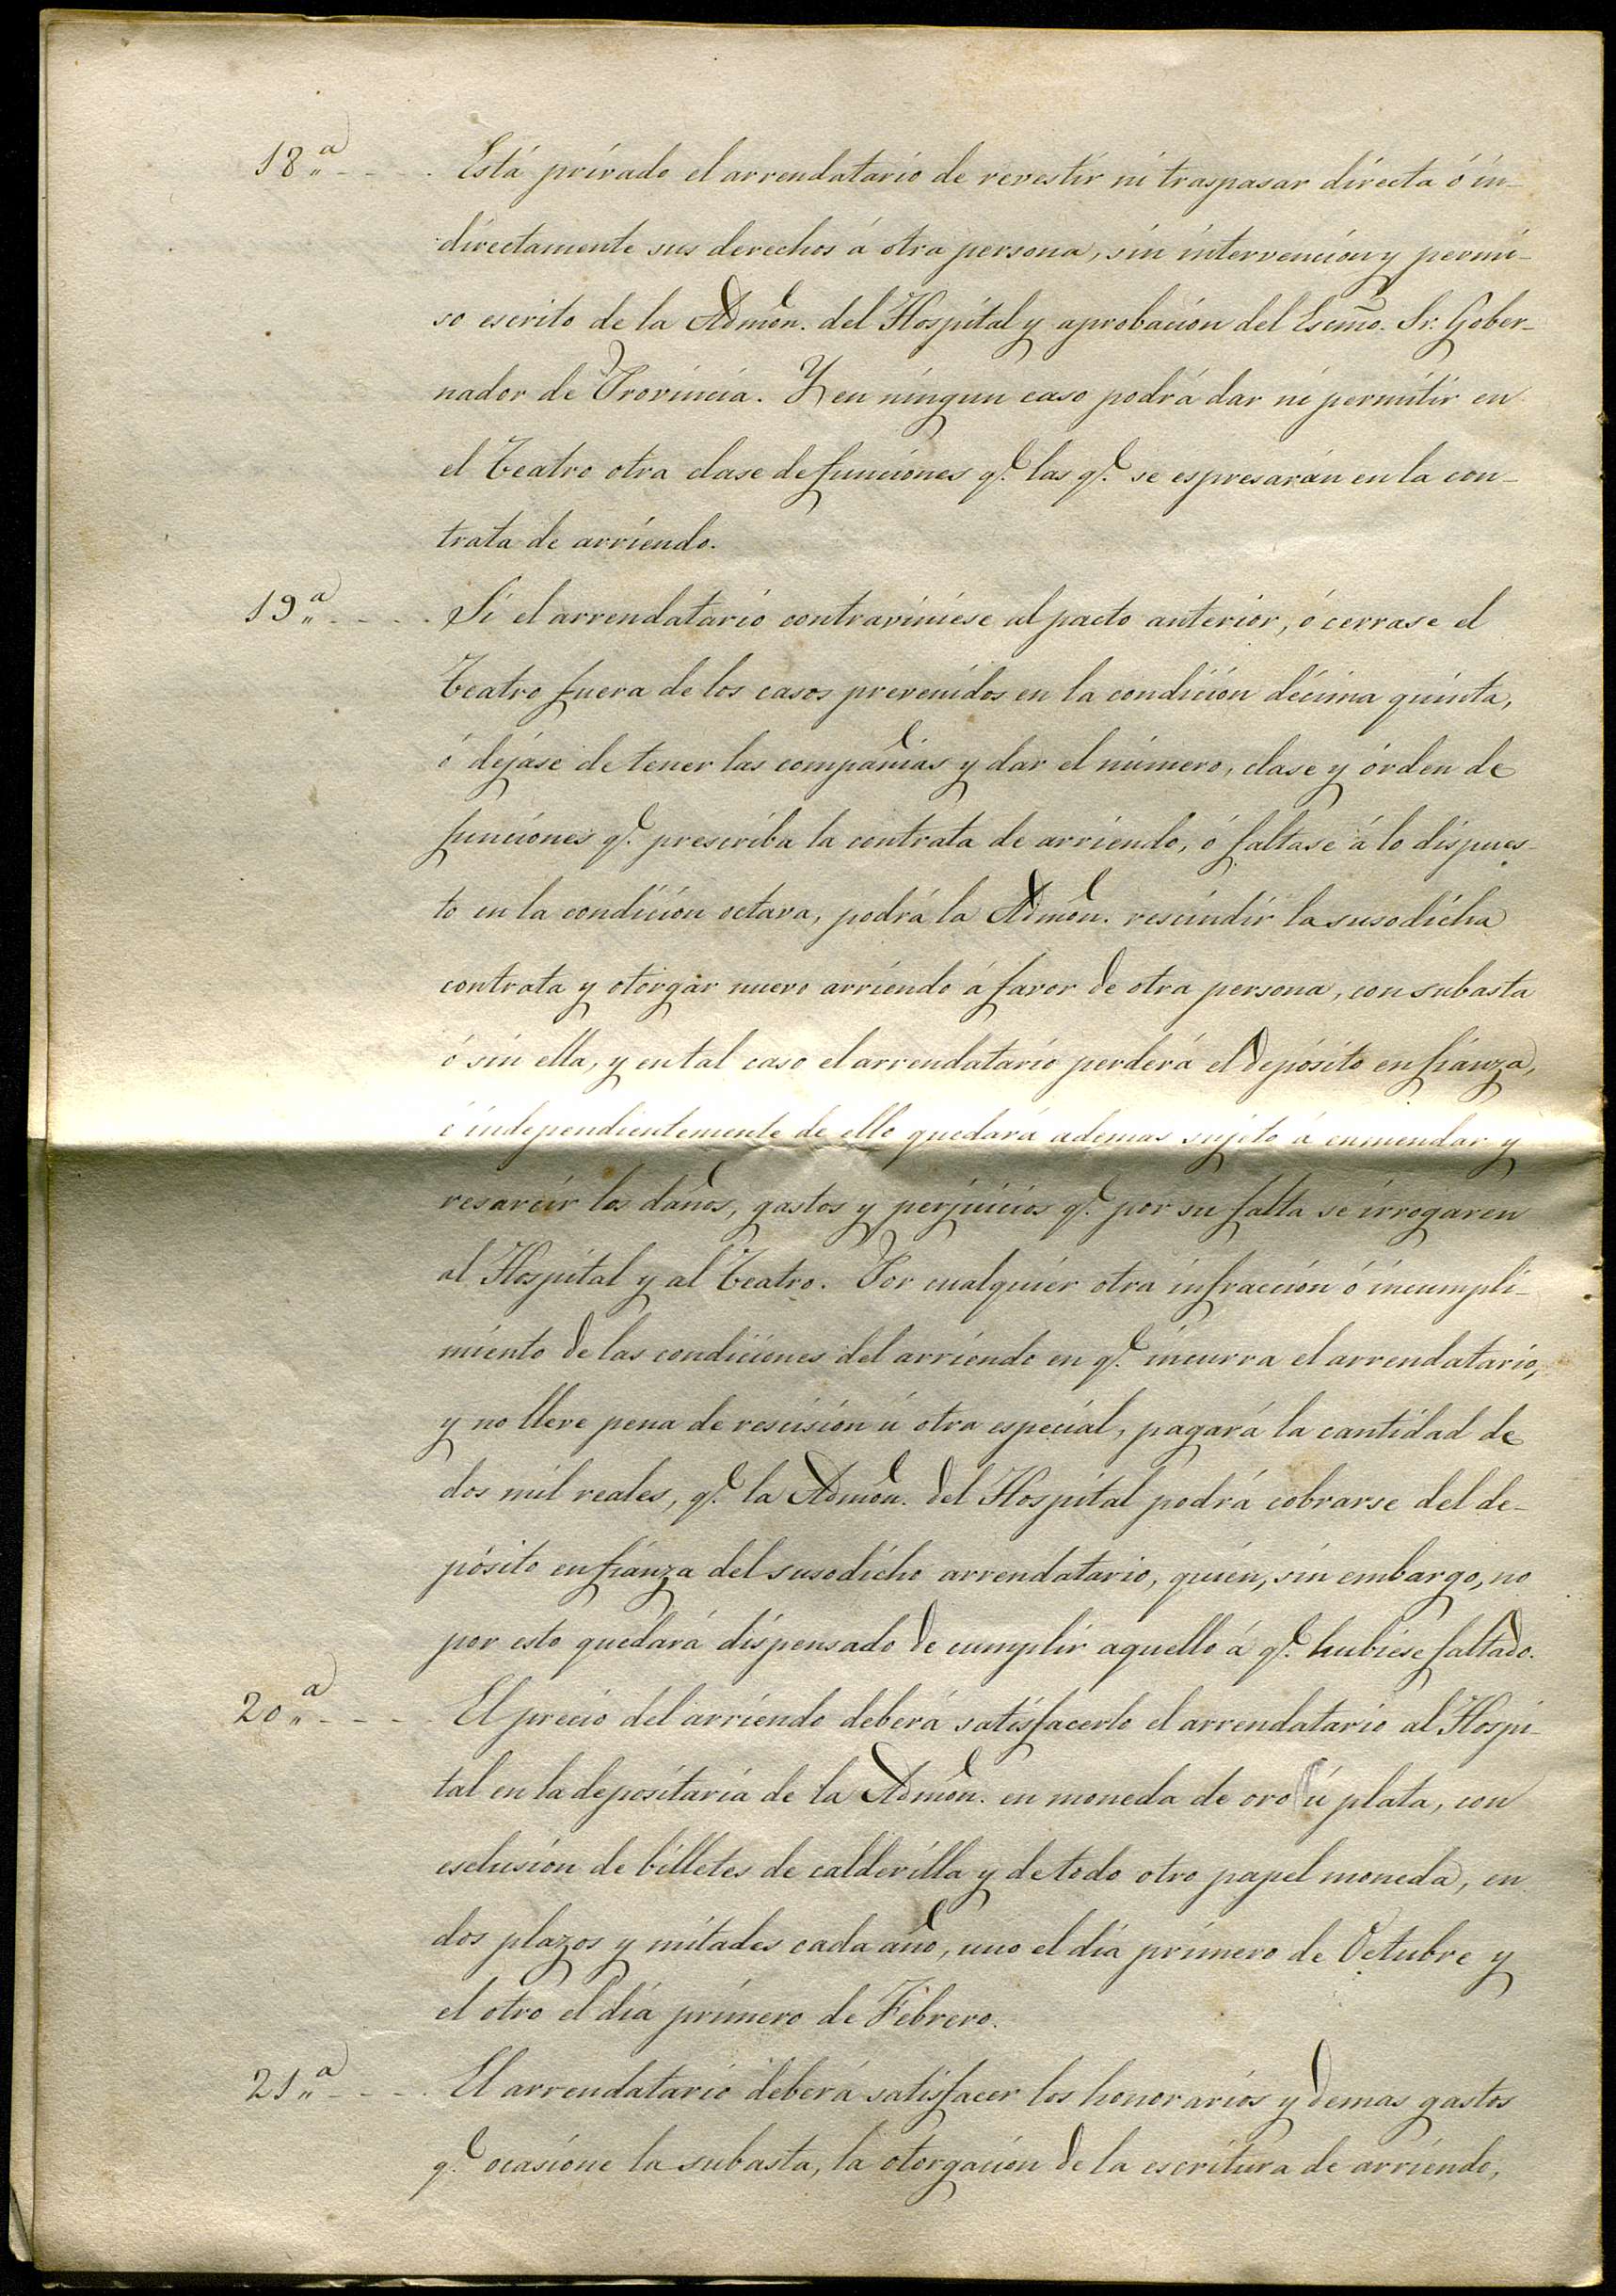 18.ª - - - . Está privado el arrendatario de revestir ni traspasar directa ó in-
directamente sus derechos á otra persona, sin intervencion y permi-
so escrito de la Admón. del Hospital y aprobacion del Escmo. Sr. Gober-
nador de Provincia. Y en ningun caso podrá dar ni permitir en
el Teatro otra clase de funciones q.e las q.e se espresarán en la con-
trata de arriendo.
19.ª - - - . Si el arrendatario contraviniese al pacto anterior, ó cerrase el
Teatro fuera de los casos prevenidos en la condicion décima quinta,
ó dejase de tener las compañias y dar el número, clase y órden de
funciones q.e prescriba la contrata de arriendo, ó faltase á lo dispues-
to en la condicion octava, podrá la Admón. rescindir la susodicha
contrata y otorgar nuevo arriendo á favor de otra persona, con subasta
ó sin ella, y en tal caso el arrendatario perderá el depósito en fianza,
é independientemente de ello quedará ademas sujeto á enmendar y
resarcir los daños, gastos y perjuicios q.e por su falta se irrogaren
al Hospital y al Teatro. Por cualquier otra infraccion ó incumpli-
miento de las condiciones del arriendo en q.e incurra el arrendatario,
y no lleve pena de rescision ú otra especial, pagará la cantidad de
dos mil reales, q.e la Admón. del Hospital podrá cobrarse del de-
pósito en fianza del susodicho arrendatario, quien, sin embargo, no
por esto quedará dispensado de cumplir aquello á q.e hubiese faltado.
20.ª - - - El precio del arriendo deberá satisfacerlo el arrendatario al Hospi-
tal en la depositaría de la Admón. en moneda de oro ú plata, con
esclusion de billetes de calderilla y de todo otro papel moneda, en
dos plazos y mitades cada año, uno el dia primero de Octubre y
el otro el dia primero de Febrero.
21.ª - - - . El arrendatario deberá satisfacer los honorarios y demas gastos
q.e ocasione la subasta, la otorgacion de la escritura de arriendo,